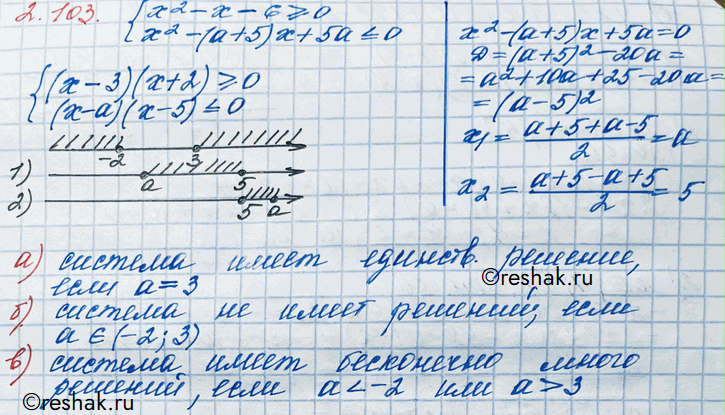 2.103.
{x² - x - 6 ≥ 0
x² - (a+5)x + 5a ≤ 0
{(x-3)(x+2) ≥ 0
(x-a)(x-5) ≤ 0
-2 3
1) a 5
2) 5 a
x² - (a+5)x + 5a = 0
D = (a+5)² - 20a =
= a² + 10a + 25 - 20a =
= (a-5)²
x₁ = (a+5+a-5)/2 = a
x₂ = (a+5-a+5)/2 = 5
а) система имеет единств. решение,
если a = 3
©reshak.ru
б) система не имеет решений, если
a ∈ (-2; 3)
в) система имеет бесконечно много
решений, если a < -2 или a > 3
©reshak.ru